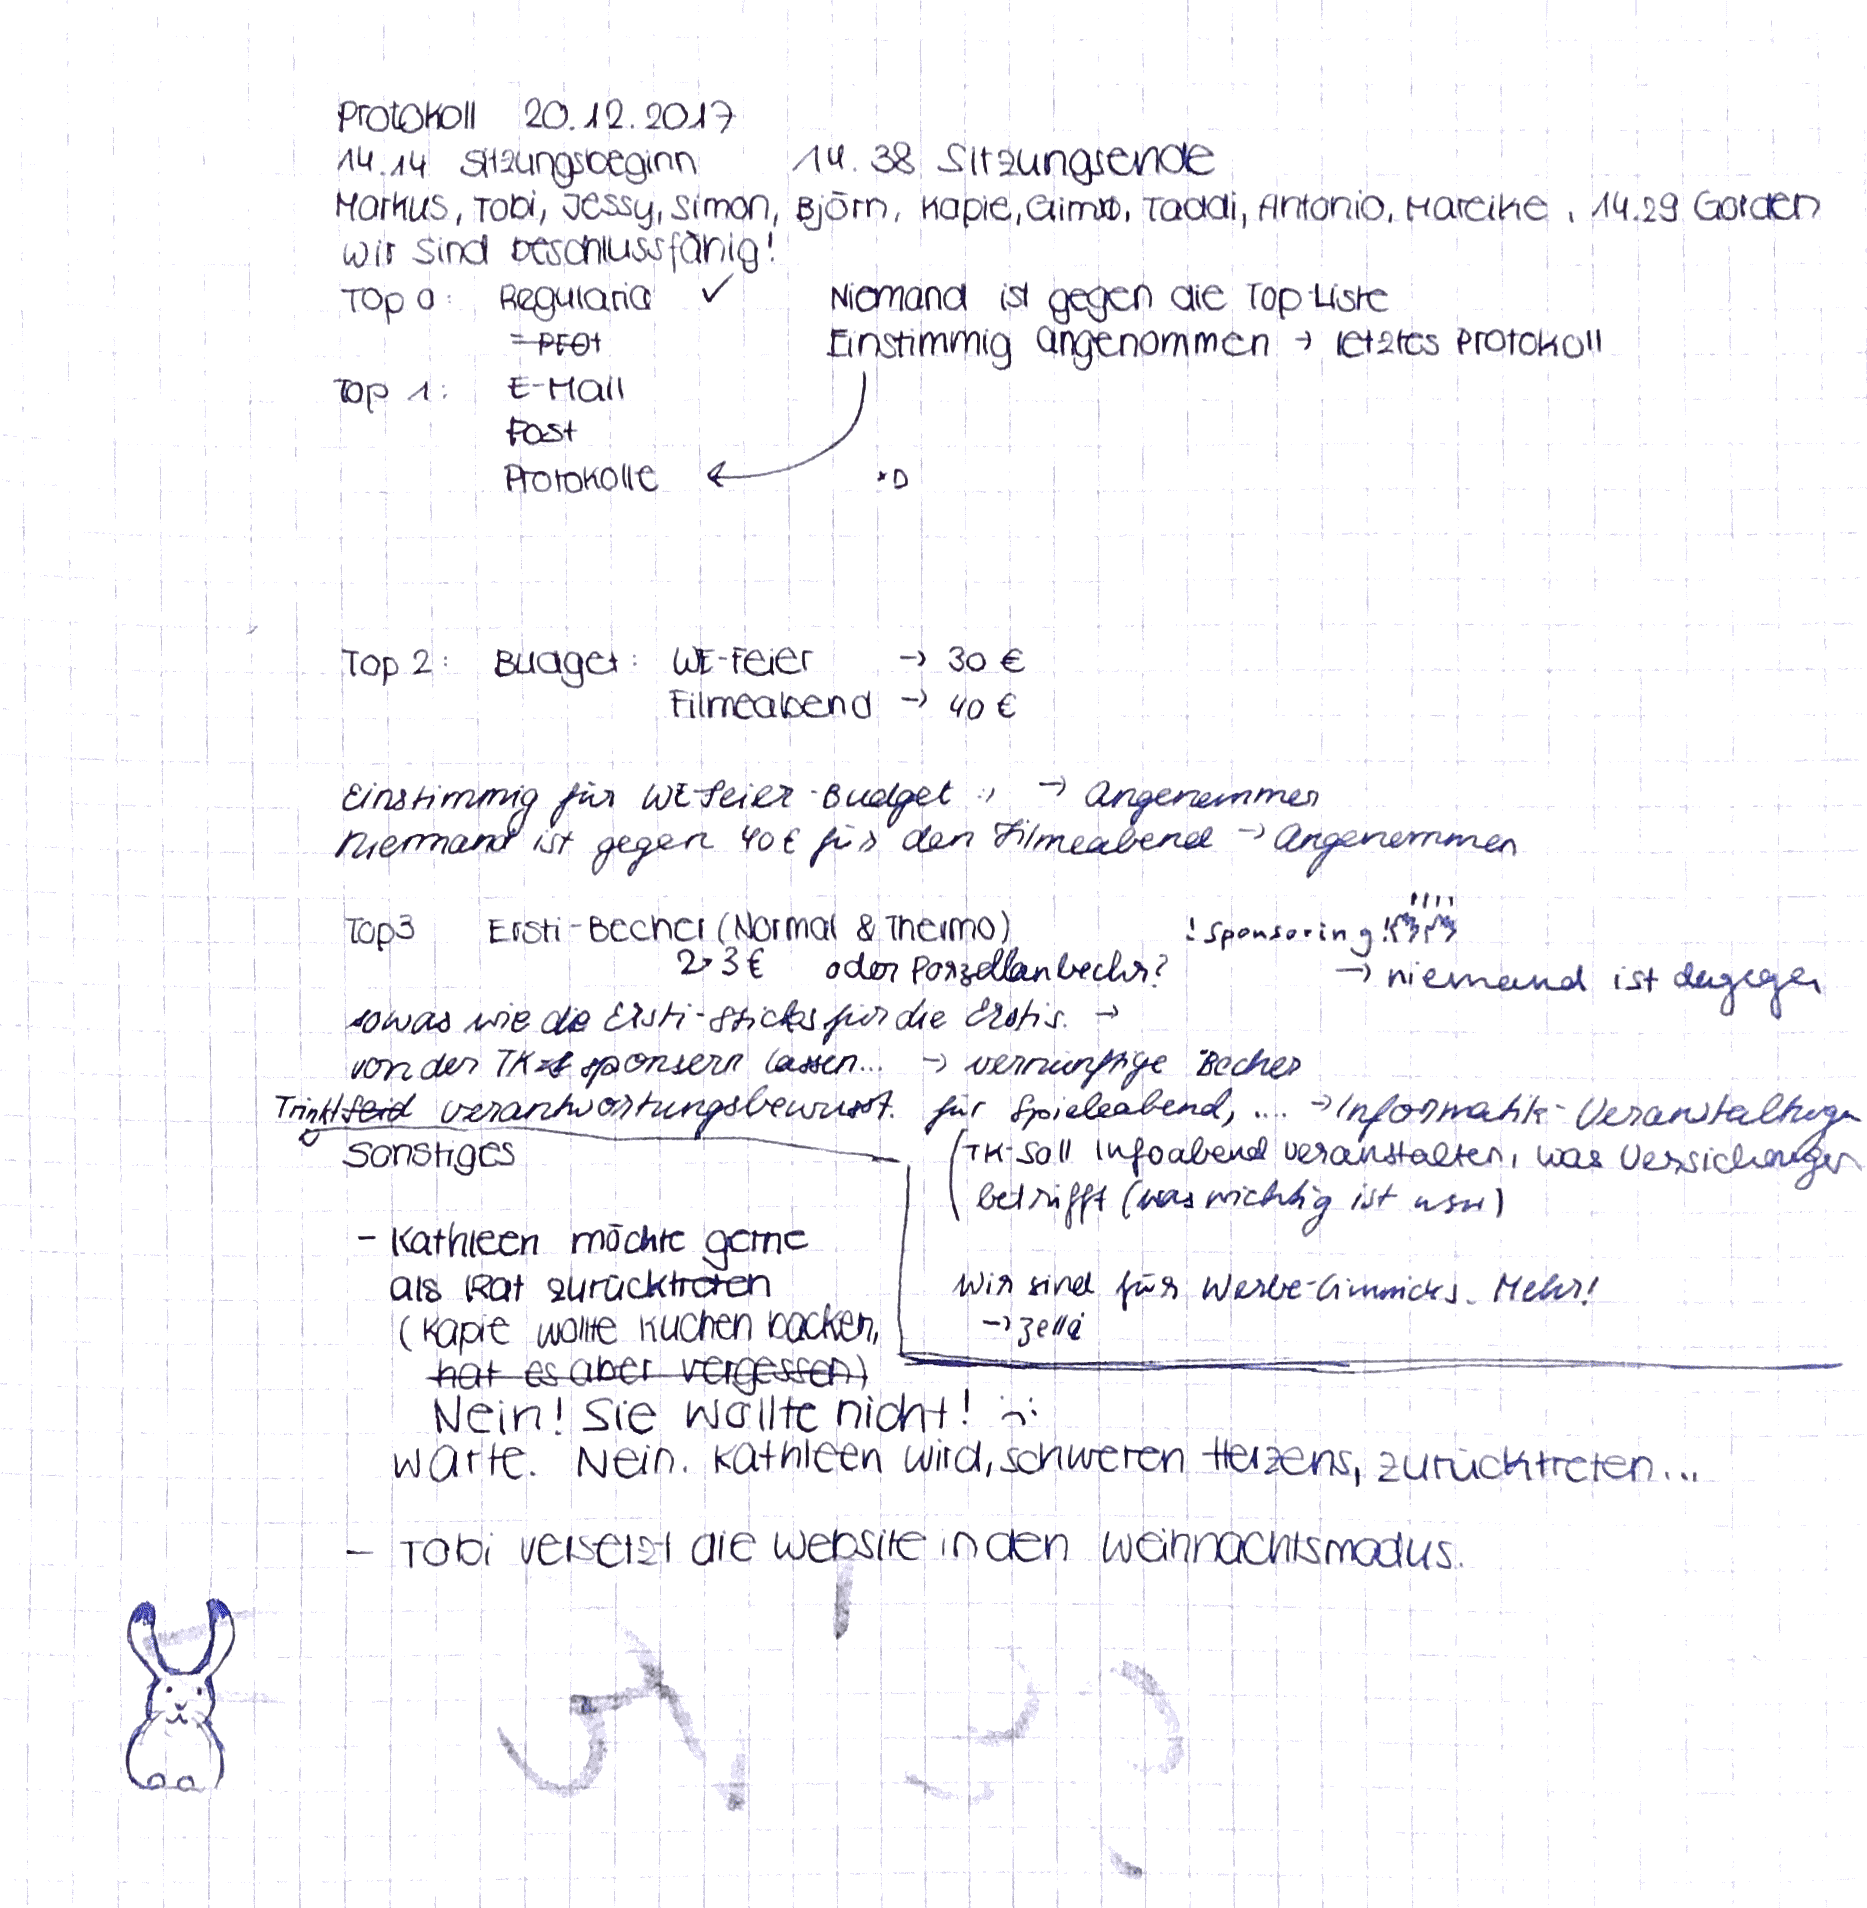 Protokoll 20.12.2017
14.14 Sitzungsbeginn 14.38 Sitzungsende
Markus, Tobi, Jessy, Simon, Björn, Kapie, Gimbo, Taddi, Antonio, Mareike, 14.29 Gorden
Wir sind beschlussfähig!
Top 0: Regularia ✓ Niemand ist gegen die Top-Liste
Einstimmig angenommen → letztes Protokoll
Top 1: E-Mail
Post
Protokolle ← *D
Top 2: Budget: WE-Feier → 30 €
Filmeabend → 40 €
Einstimmig für WE-Feier-Budget :) → Angenommen
Niemand ist gegen 40 € für den Filmeabend → Angenommen
Top 3 Ersti-Becher (Normal & Thermo) ! Sponsoring !
2,3 € oder Porzellanbechr? → niemand ist dagegen
sowas wie die Ersti-Sticks für die Erstis. →
von der TK sponsern lassen... → vernünftige Becher
Trinkt seid verantwortungsbewusst. für Spieleabend, .... → Informatik-Veranstaltungen
Sonstiges (TK-Soll Infoabend veranstalten, was Versicherungen
betrifft (was wichtig ist usw)
- Kathleen möchte gerne
als Rat zurücktreten Wir sind für Werbe-Gimmicks. Mehr!
(Kapie wollte Kuchen backen, →
hat es aber vergessen)
Nein! Sie wollte nicht! ):
Warte. Nein. Kathleen wird, schweren Herzens, zurücktreten...
- Tobi versetzt die Website in den Weihnachtsmodus.